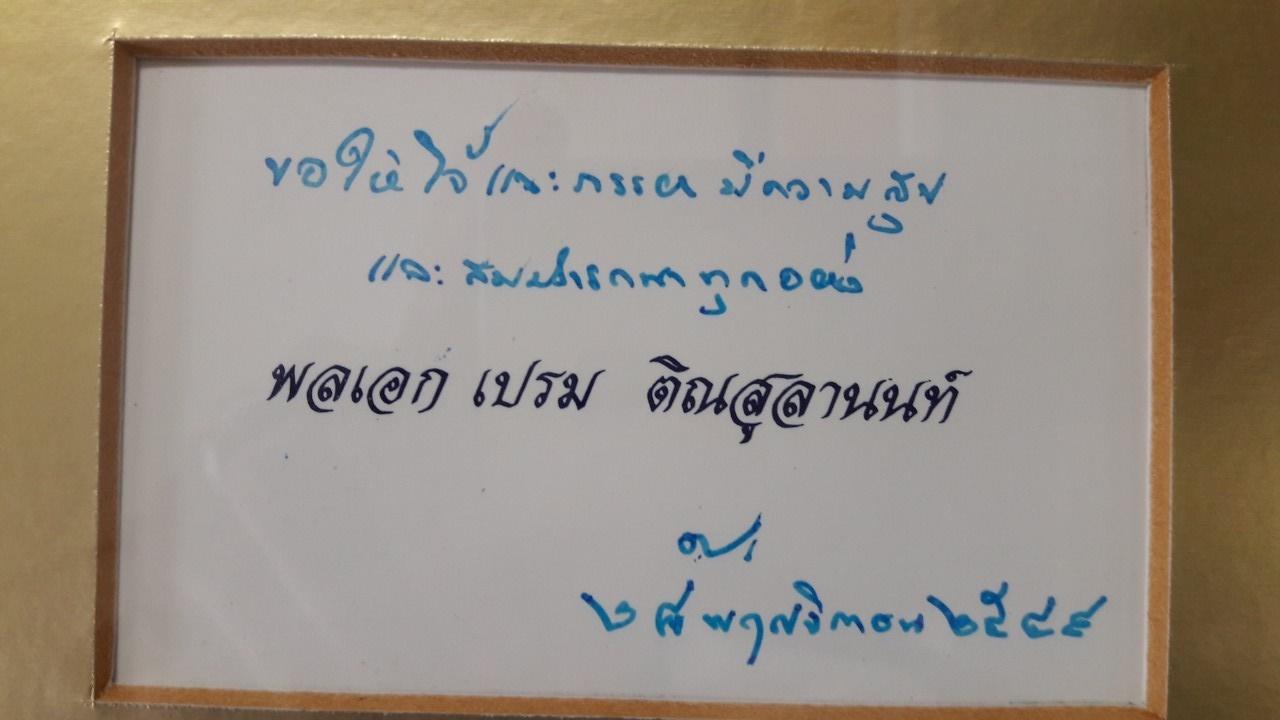 ขอให้ และภรรยา มีความสุข
และสมปรารถนาทุกอย่าง
พลเอก เปรม ติณสูลานนท์
พฤศจิกายน ๒๕๔๙